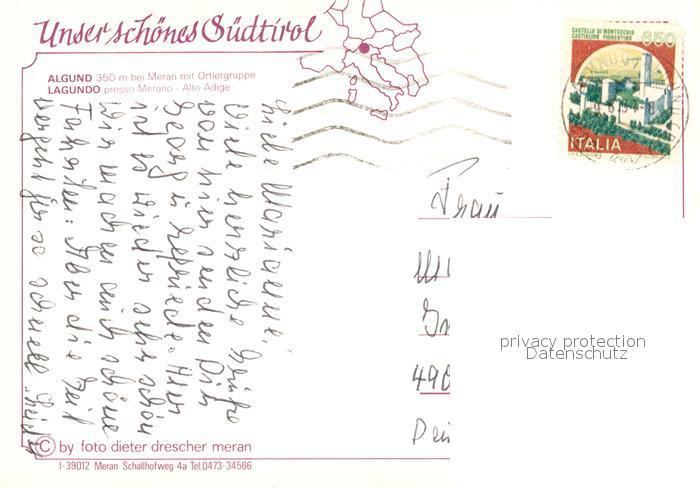 Unser schönes Südtirol
ALGUND 350 m bei Meran mit Ortlergruppe
LAGUNDO presso Merano - Alto Adige
CASTELLO DI MONTECCHIO
CASTIGLION FIORENTINO
650
ITALIA
Liebe Marianne,
Viele herzliche Grüße
von hier senden Dir
Georg u.
ist es wieder sehr schön
Wir machen auch schöne
Fahrten. Aber die Zeit
vergeht für so schnell.
Frau
490
privacy protection
Datenschutz
© by foto dieter drescher meran
I-39012 Meran Schallhofweg 4a Tel.0473-34566